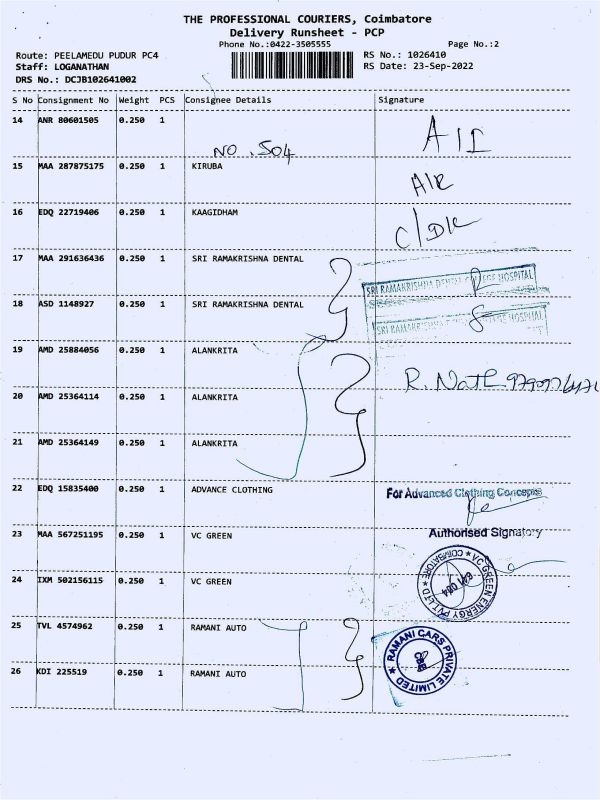 THE PROFESSIONAL COURIERS, Coimbatore
Delivery Runsheet - PCP
Phone No.:0422-3505555 Page No.:2
Route: PEELAMEDU PUDUR PC4 RS No.: 1026410
Staff: LOGANATHAN RS Date: 23-Sep-2022
DRS No.: DCJB102641002
S No Consignment No Weight PCS Consignee Details Signature
14 ANR 80601505 0.250 1
NO. 504
15 MAA 287875175 0.250 1 KIRUBA
16 EDQ 22719406 0.250 1 KAAGIDHAM
17 MAA 291636436 0.250 1 SRI RAMAKRISHNA DENTAL
SRI RAMAKRISHNA DENTAL COLLEGE HOSPITAL
18 ASD 1148927 0.250 1 SRI RAMAKRISHNA DENTAL
SRI RAMAKRISHNA HOSPITAL
19 AMD 25884056 0.250 1 ALANKRITA
R. Nath
20 AMD 25364114 0.250 1 ALANKRITA
21 AMD 25364149 0.250 1 ALANKRITA
22 EDQ 15835400 0.250 1 ADVANCE CLOTHING For Advanced Clothing Concepts
Authorised Signatory
23 MAA 567251195 0.250 1 VC GREEN
24 IXM 502156115 0.250 1 VC GREEN
VC GREEN ENERGY PVT LTD COIMBATORE
25 TVL 4574962 0.250 1 RAMANI AUTO
RAMANI CARS PRIVATE LIMITED
26 KDI 225519 0.250 1 RAMANI AUTO